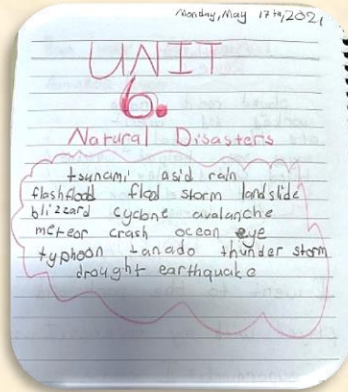 Monday, May 17th, 2021
UNIT
6.
Natural Disasters
tsunami asid rain
flashflood flood storm landslide
blizzard cyclone avalanche
meteor crash ocean eye
typhoon tanado thunder storm
drought earthquake